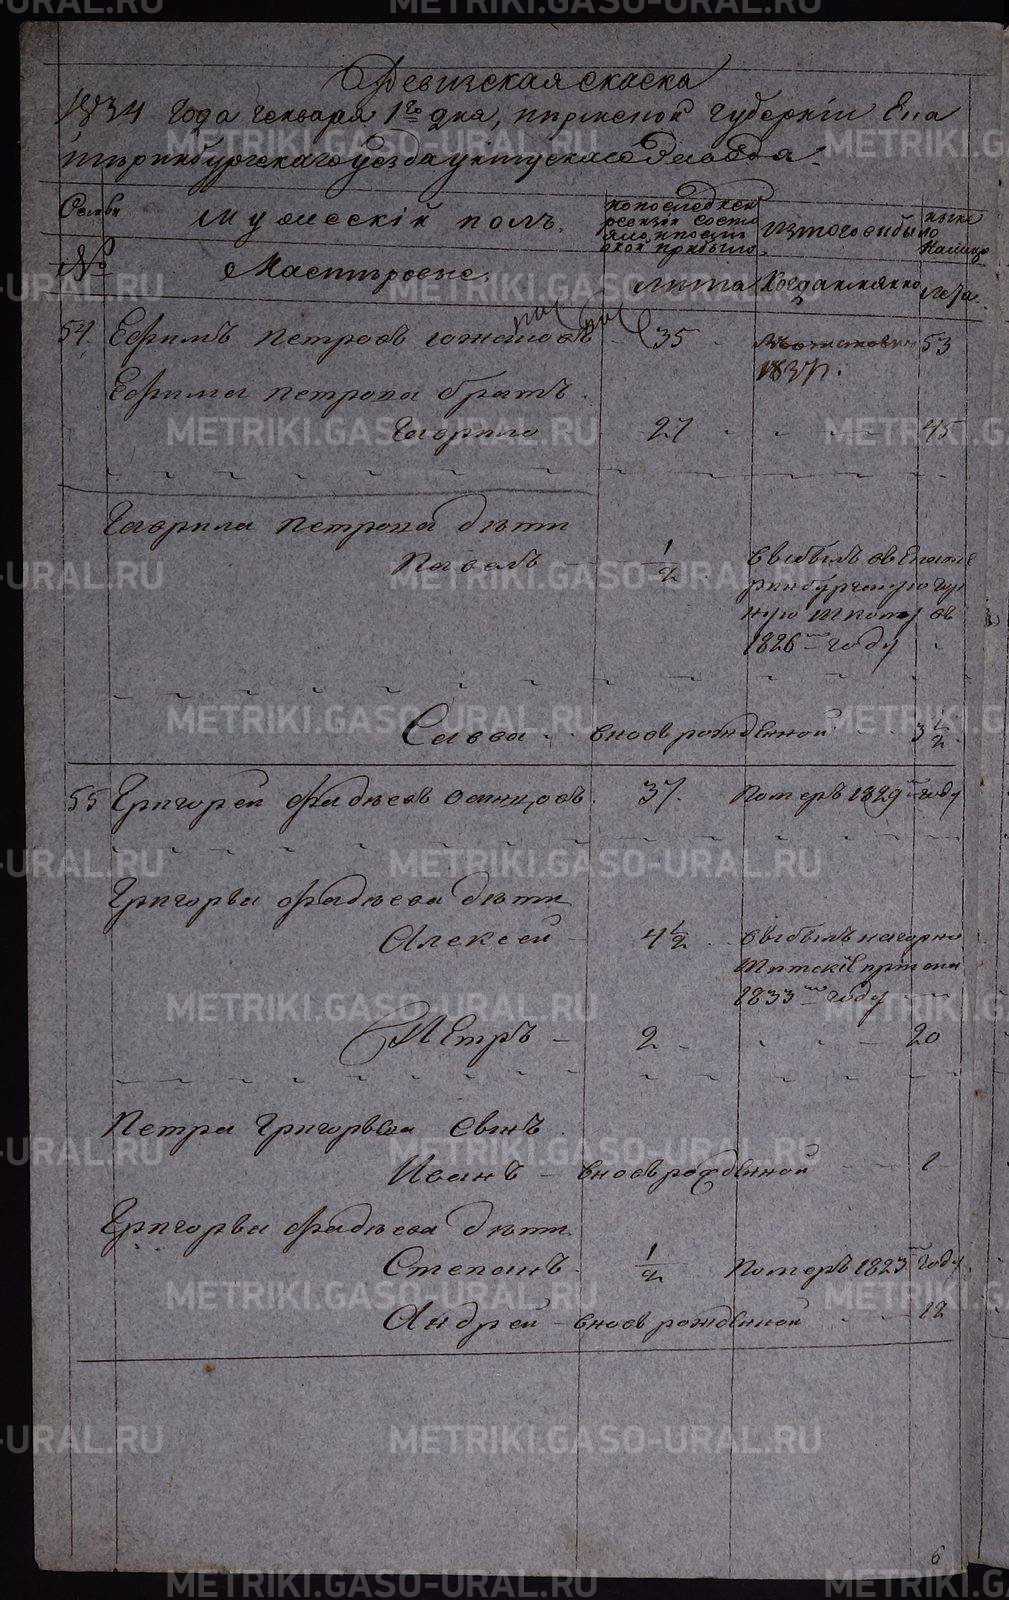 Ревизская скаска
1834 года генваря 1го дня, пермской губернии Ека
теринбургскаго уезда уктускаго завода.
Семьи
№
мужескій полъ.
Мастерские.
по последней
ревизіи состо
яло и после
оной прибыло.
лета
Изъ того выбы
Когда имянно
ныне
на лицо
лета.
54. Ефимъ петровъ 35 53
1837.
Ефима петрова братъ
Гаврило 27 45
Гаврила петрова дети
Павелъ 1/2 выбылъ в Екате
ринбургскую
школу в
1826м году
Савва вновь рожденной 3 1/2
55 Григорей фадеевъ 37. Померъ 1829м году
Григорья фадеева дети
Алексей 4 1/2 выбылъ на горно
1833м году
Петръ 2 20
Петра григорьева сынъ
Иванъ вновь рожденной 1
Григорья фадеева дети
Степанъ 1/2 Померъ 1823м году
Андрей вновь рожденной 12
6
METRIKI.GASO-URAL.RU